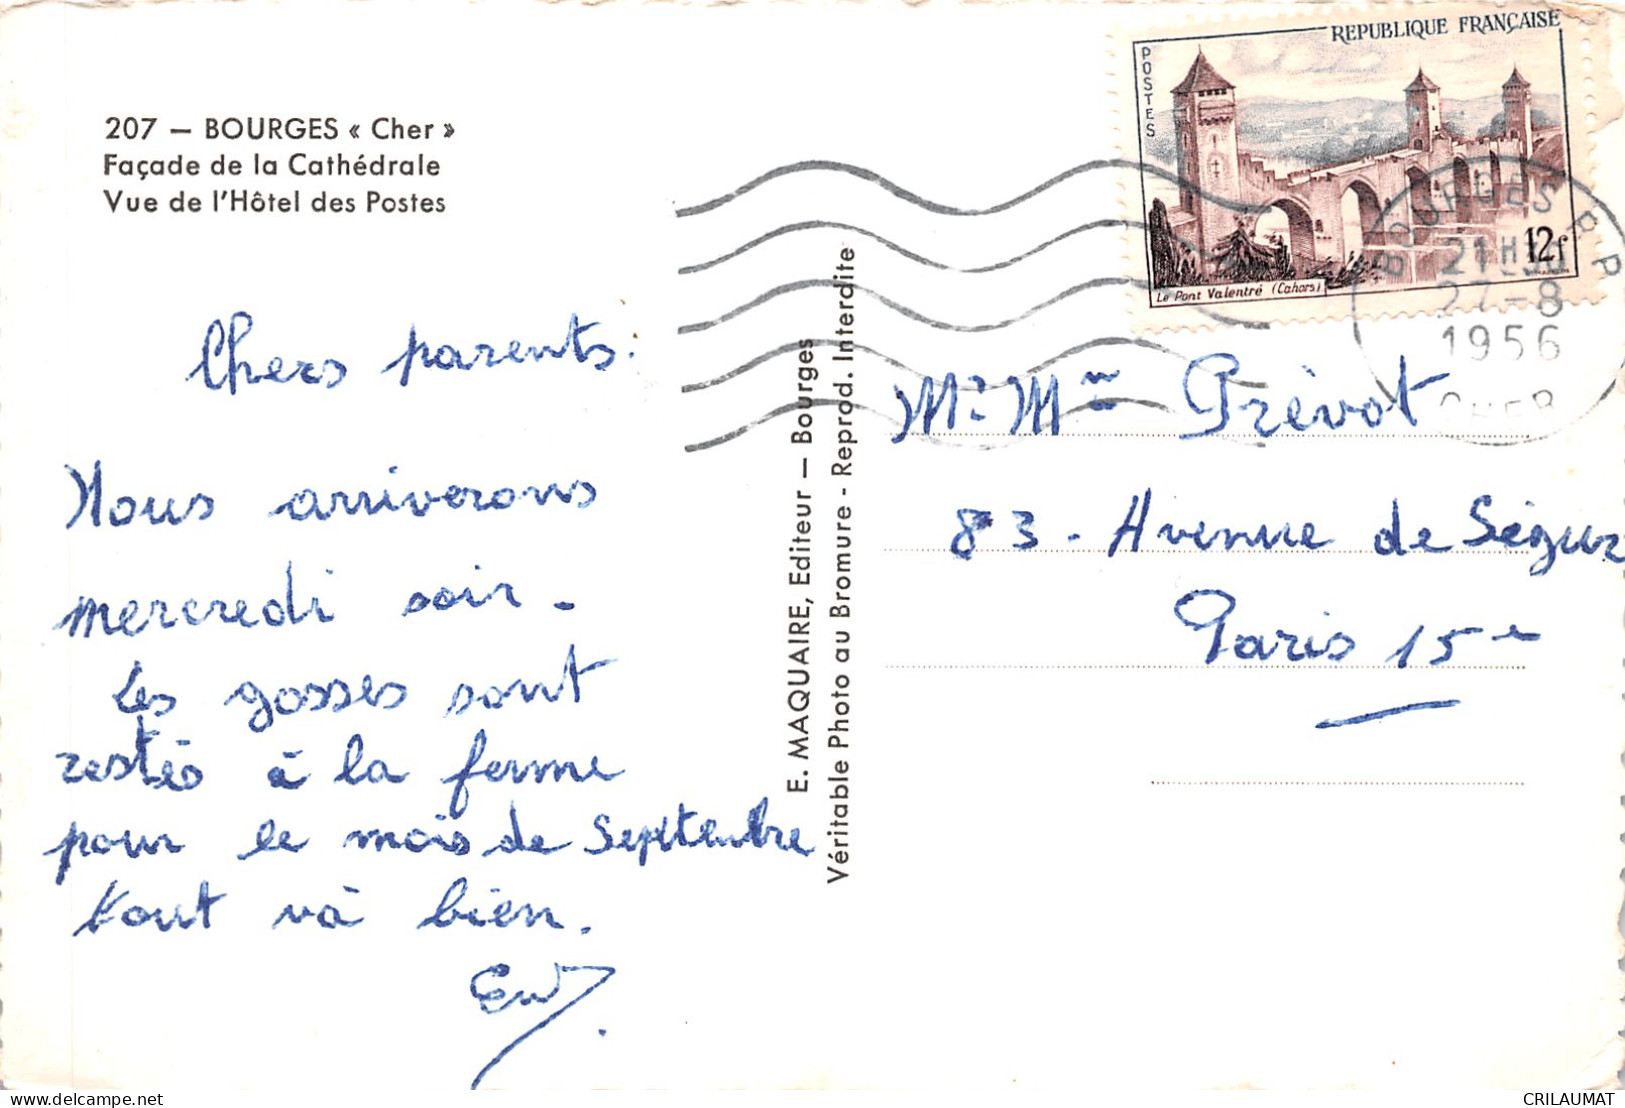 207 — BOURGES « Cher »
Façade de la Cathédrale
Vue de l'Hôtel des Postes
Chers parents.
Nous arriverons
mercredi soir -
Les gosses sont
restés à la ferme
pour le mois de Septembre
tout và bien.
E. MAQUAIRE, Editeur — Bourges
Véritable Photo au Bromure - Reprod. Interdite
REPUBLIQUE FRANÇAISE
POSTES
12f
Le Pont Valentré (Cahors)
BOURGES R P
21H
27-8
1956
CHER
Mr Mme Prévot
83 - Avenue de Ségur
Paris 15e
CRILAUMAT